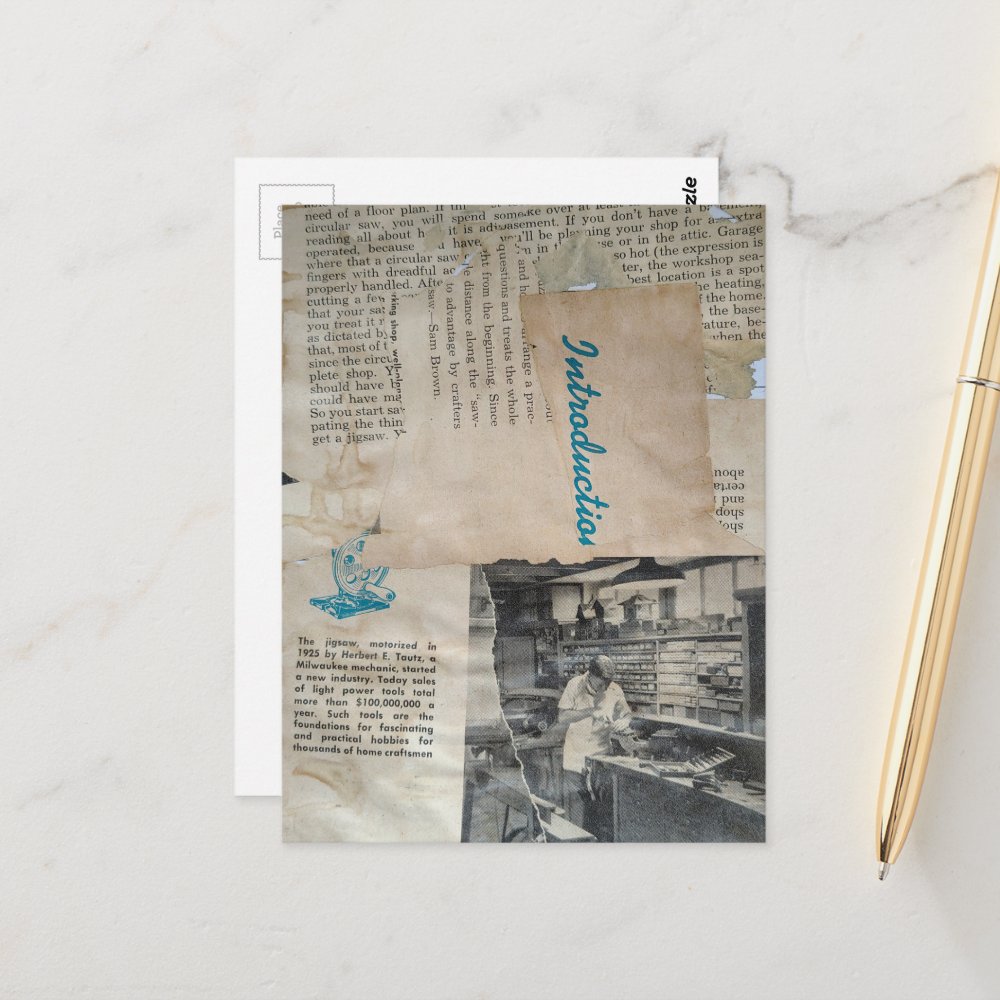 need of a floor plan. If
circular saw, you will spend som
reading all about h it is ad
operated, because have
where that a circular saw
fingers with dreadful
properly handled.
cutting a few
that your
you treat it
as dictated by
that, most of
since the
plete shop.
should have
could have
So you start
pating the
get a jigsaw.
ke over at least
asement. If you don't have a
you'll be planning your shop for a extra
in use or in the attic. Garage
so hot (the expression is
the workshop sea-
best location is a spot
heating,
the home.
the base-
be-
when the
rking shop,
and arrange a prac-
questions and treats the whole
from the beginning. Since
distance along the "saw-
to advantage by crafters
saw.—Sam Brown.
Introduction
abou
certa
and
shop
The jigsaw, motorized in
1925 by Herbert E. Tautz, a
Milwaukee mechanic, started
a new industry. Today sales
of light power tools total
more than $100,000,000 a
year. Such tools are the
foundations for fascinating
and practical hobbies for
thousands of home craftsmen
Place
zle